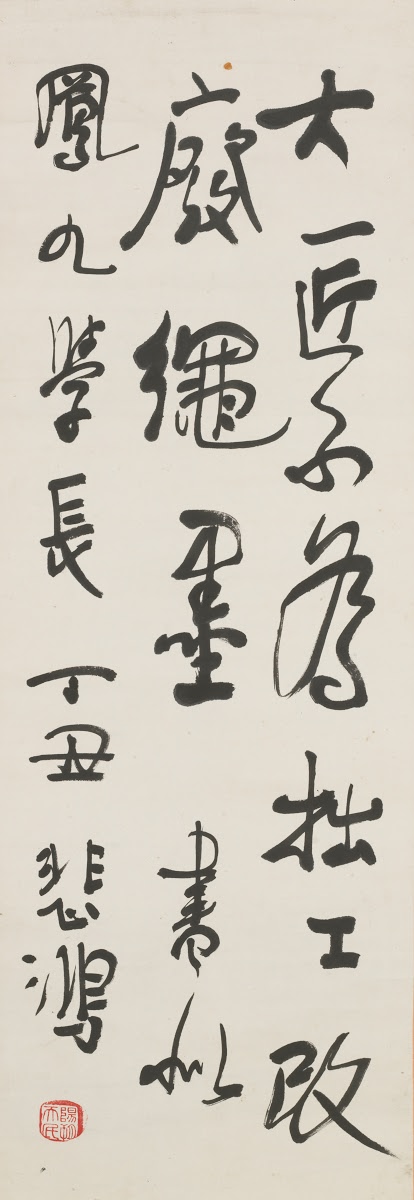 大匠不為拙工改
廢繩墨 書似
鳳九學長 丁丑 悲鴻
陽朔天民